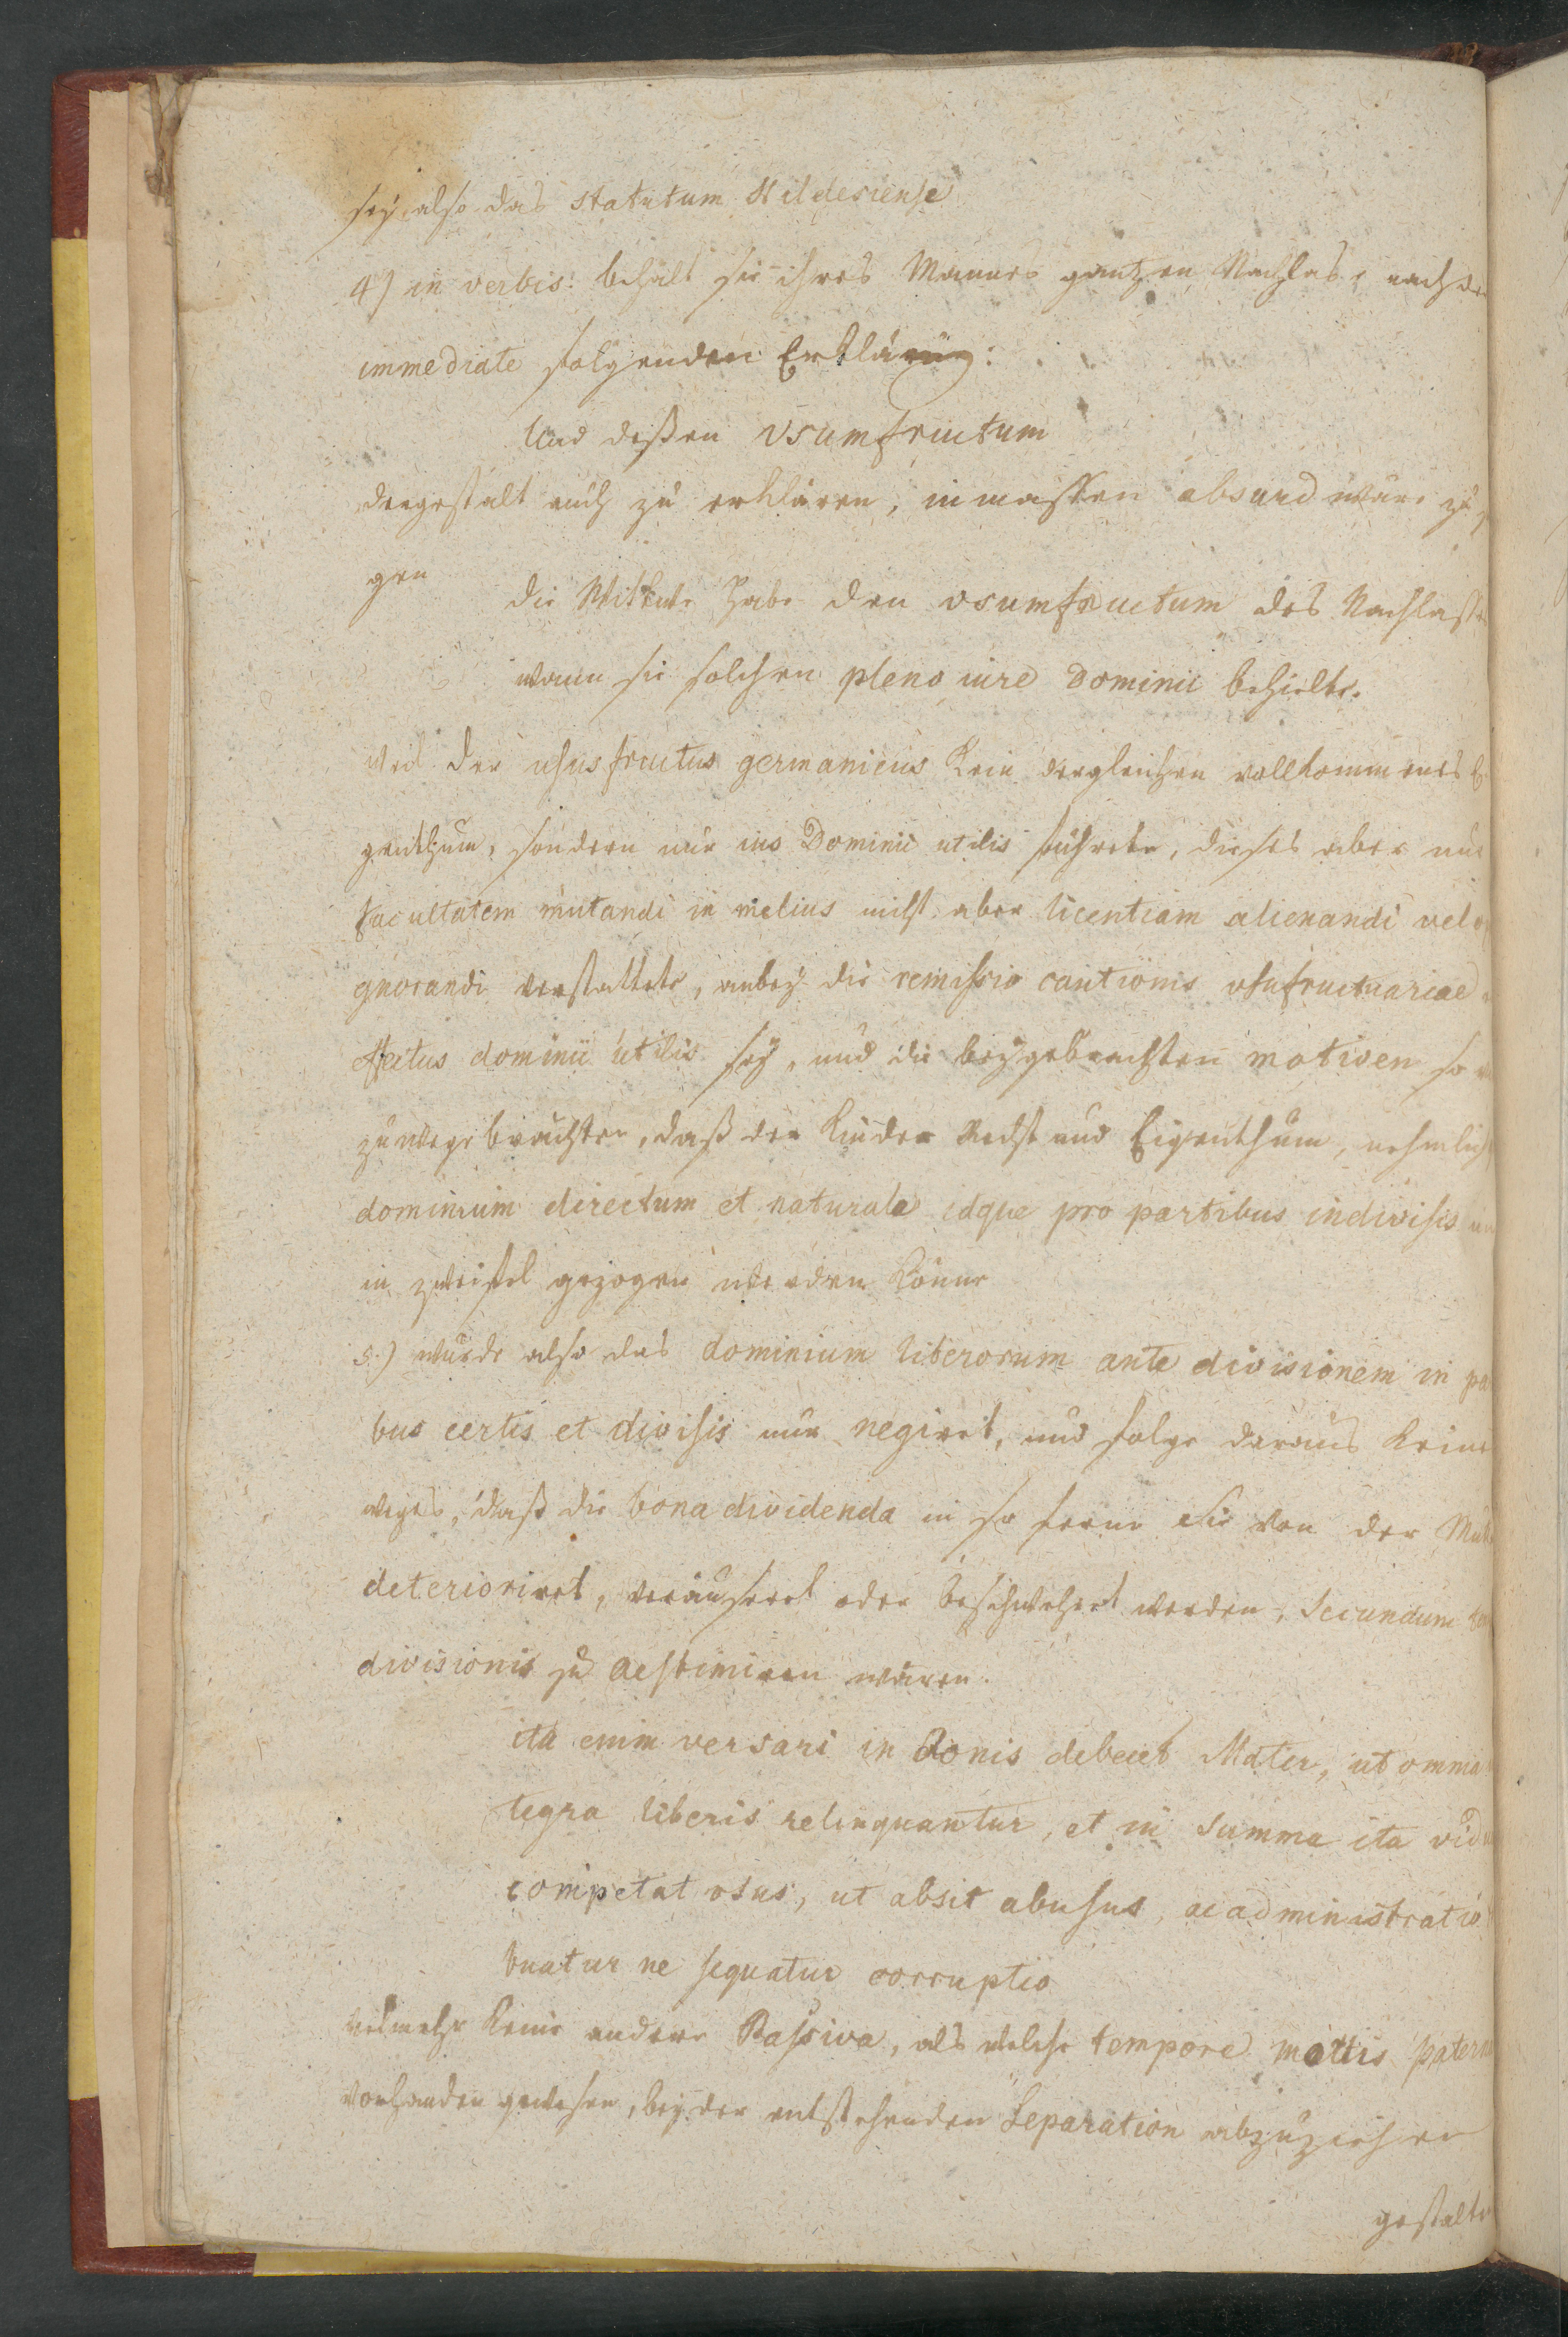 sey, also das statutum Hildesiense
4) in verbis: behält sie ihres Mannes gantzen Nachlas, nach der
immediate folgenden Erklärung:
Und deßen Vsumfructum
dergestalt auch zu erklären, inmassen absurd wäre zu
gen
die Wittwe habe den vsumfructum des Nachlasses
wann sie solchen pleno iure Dominii behielte.
weil der usus fructus germanicus kein dergleichen vollkommenes E
genthum, sondern nur ius Dominii utilis führete, dieses aber nur
facultatem mutandi in melius nicht aber licentiam alienandi vel op
gnorandi verstattete, anbey die remissio cautionis vsufructuariae
effectus dominii utilis sey, und die beygebrachten motiven so
zuwege brächten, daß der Kinder Recht und Eigenthum, nehmlich
dominium directum et naturale idque pro partibus indivisis
in zweifel gezogen werden könne
5.) würde also das dominium liberorum ante divisionem in par
bus certis et divisis nur negiret, und folge daraus keine
weges, daß die bona dividenda in so ferne sie von der Mutter
deterioriret, veräusert oder beschwehret werden, secundum
divisionis zu aestimiren wären.
ita enim versari in bonis debeat Mater, ut omnia
tegra liberis relinquantur, et in summa ita vid
competat vsus, ut absit abusus, ac administratio
buatur ne sequatur corruptio
vielmehr keine andere Passiva, als welche tempore mortis patern
vorhanden gewesen, bey der entstehenden Separation abzuziehen
gestalten